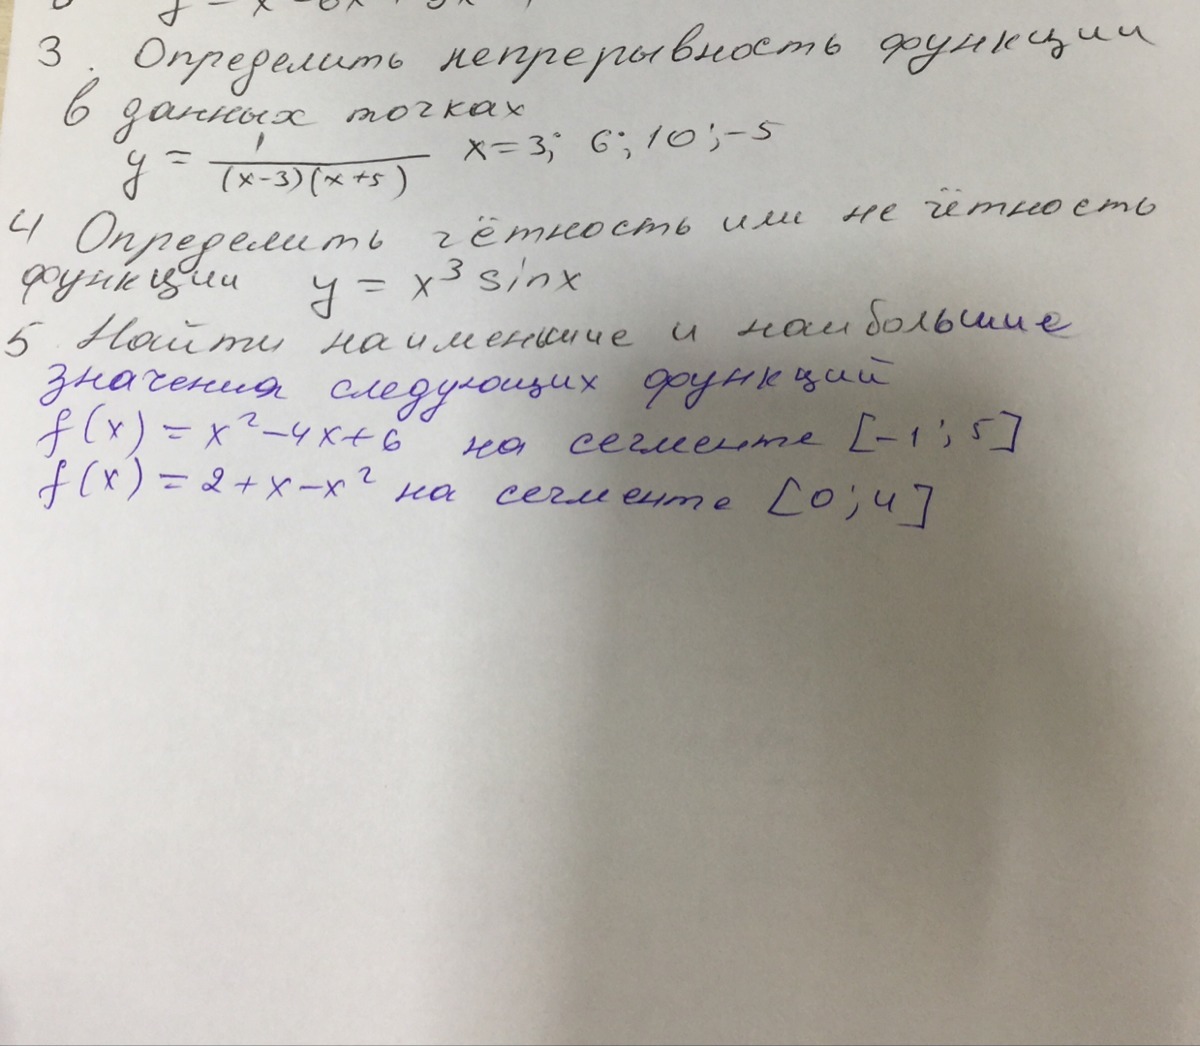 3. Определить непрерывность функции
в данных точках
y = 1/((x-3)(x+5)) x=3; 6; 10; -5
4 Определить чётность или не чётность
функции y = x³ sinx
5 Найти наименшие и наибольшие
значения следующих функций
f(x) = x² - 4x + 6 на сегменте [-1; 5]
f(x) = 2 + x - x² на сегменте [0; 4]